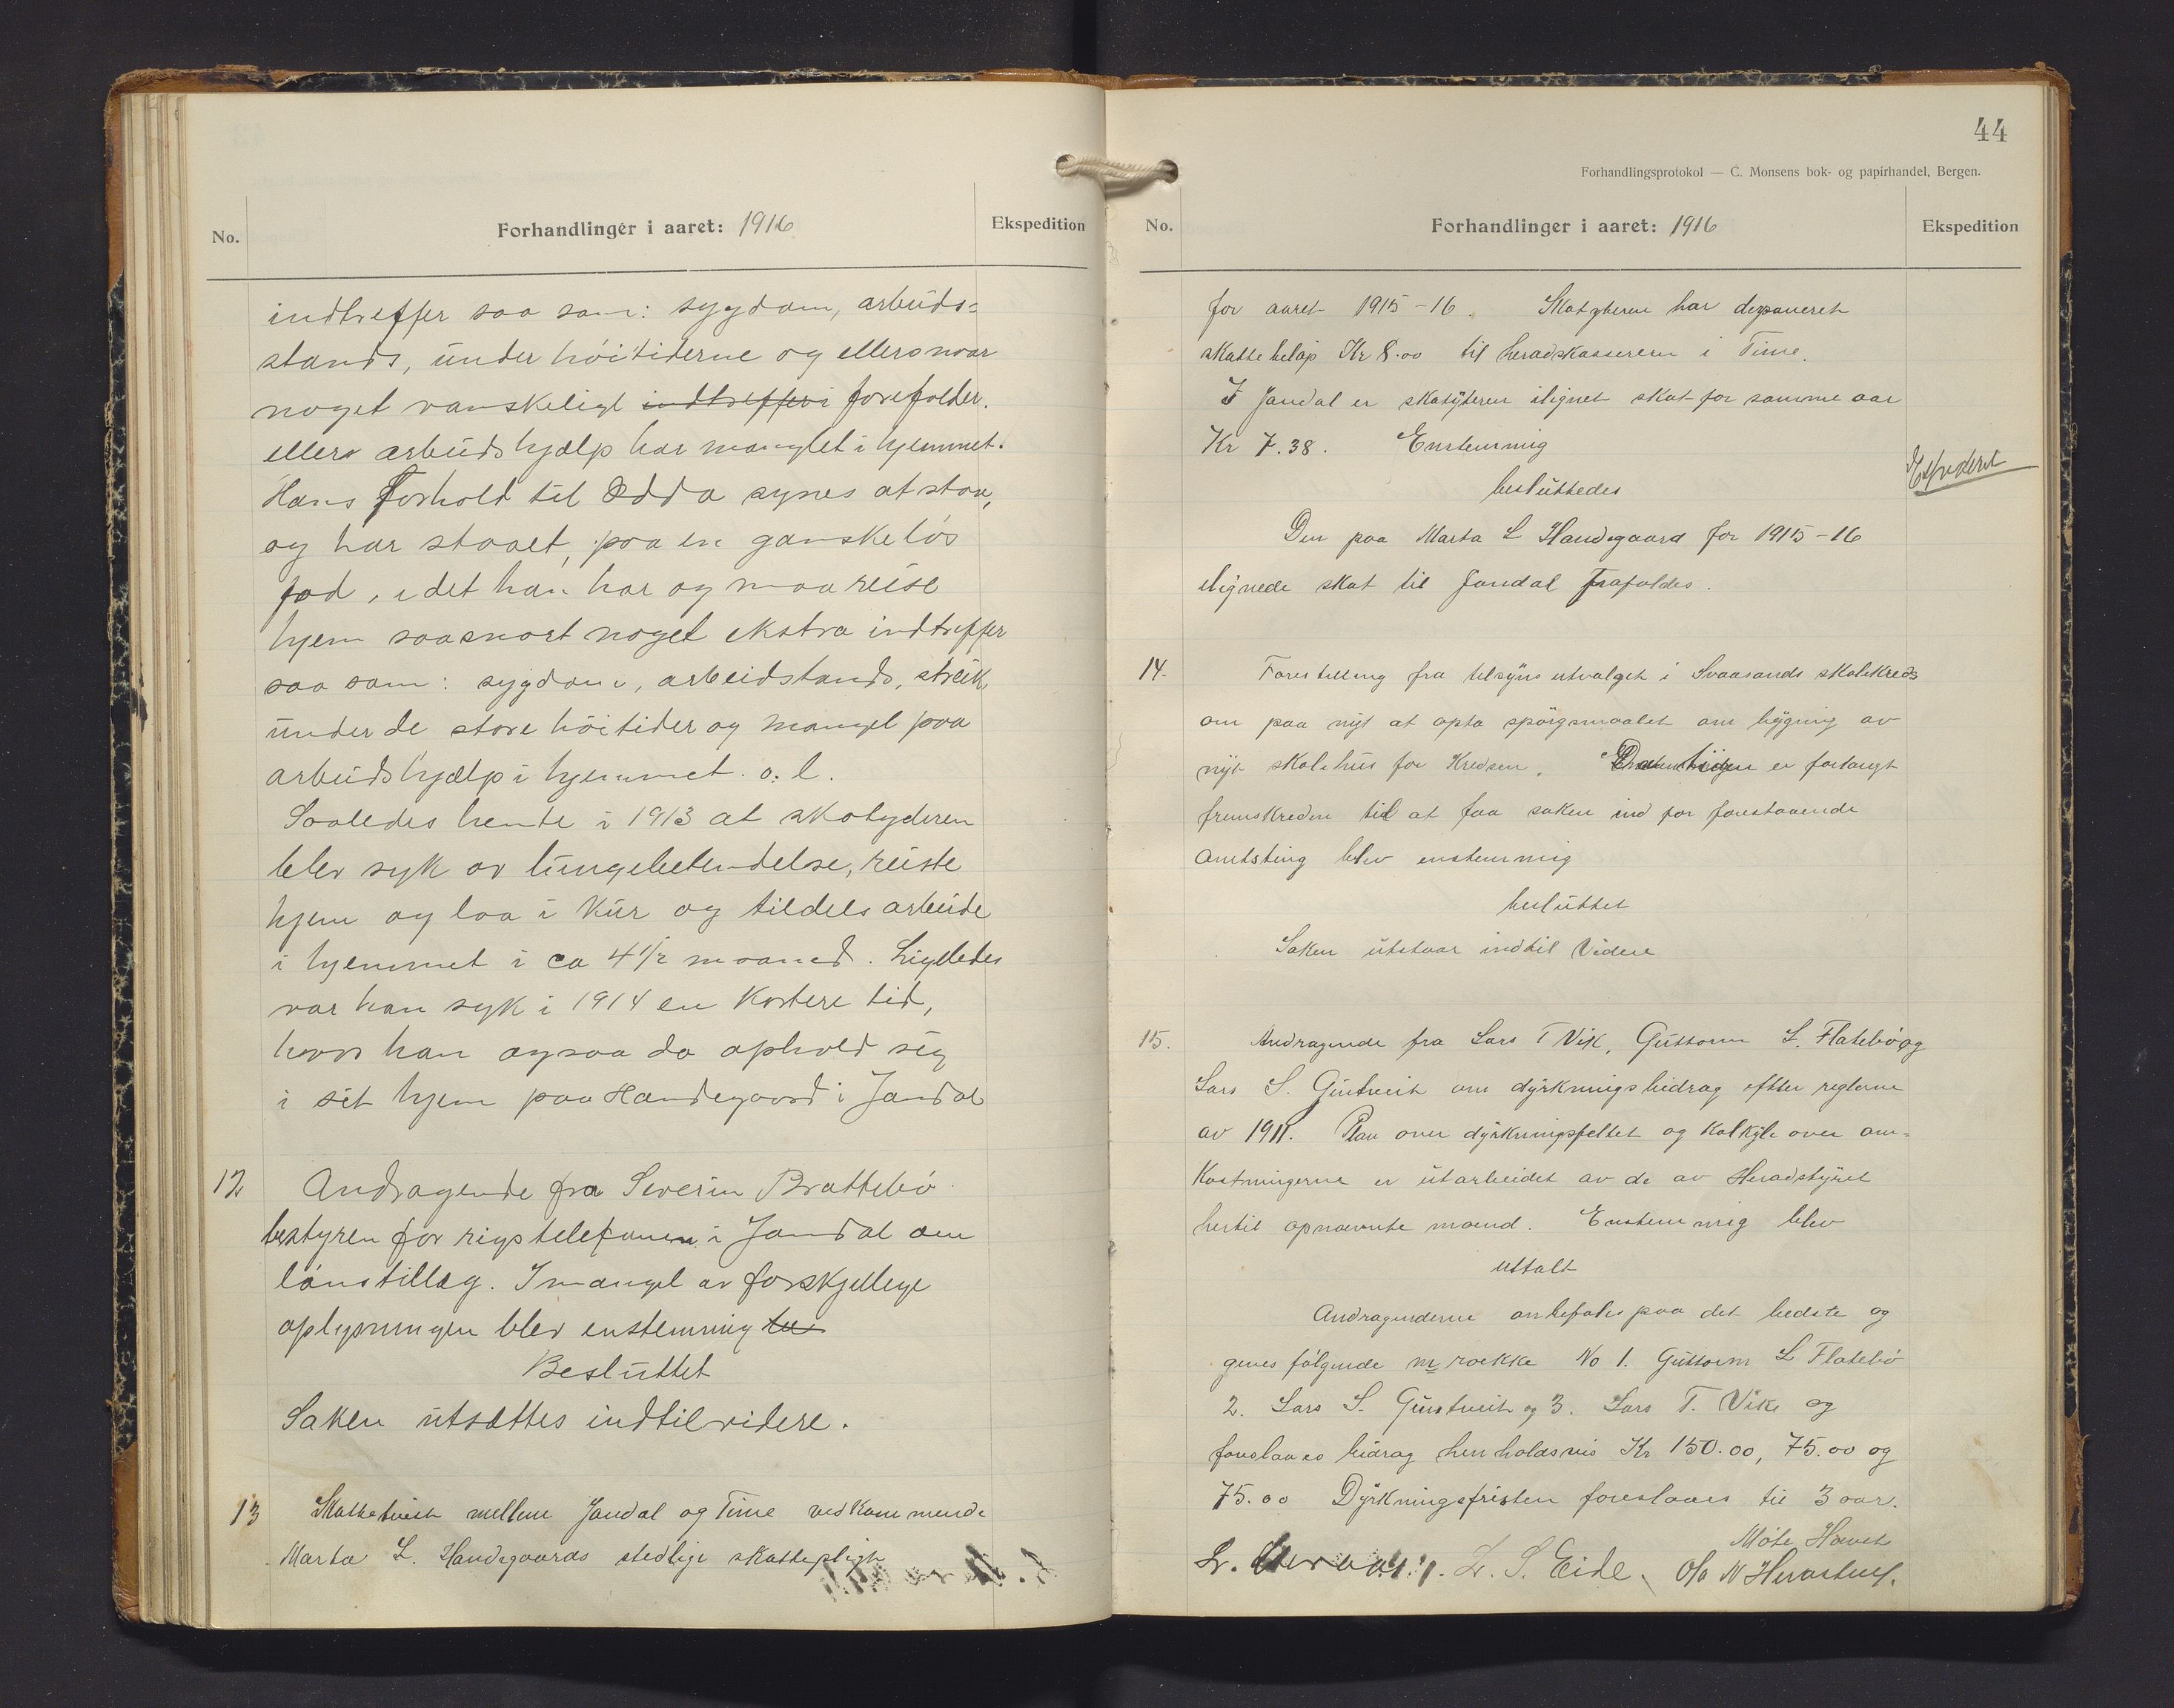 No.
Forhandlinger i aaret: 1916
Ekspedition
indtreffer saa som: sygdom, arbeids=
stands, under höitiderne og ellers naar
noget vanskeligt indtreffer i forefolder.
ellers arbeidshjælp har manglet i hjemmet.
Hans Forhold til Odda synes at staa,
og har staaet, paa en ganske lös
fod, idet han har og maa reise
hjem saasnart noget ekstra indtreffer
saa som: sygdom, arbeidstands, streik,
under de store höitider og mangel paa
arbeidshjælp i hjemmet. o. l.
Saaledes hente i 1913 at skatyderen
blev syk av lungebetendelse, reiste
hjem og laa i Kur og tildels arbeide
i hjemmet i ca 4 1/2 maaned. Ligeledes
var han syk i 1914 en kortere tid,
hvor han ogsaa da ophold sig
i sit hjem paa Handegaard i Jondal
12 Andragende fra Severin Brattebö
bestyren for rigstelefonen i Jondal om
lönstillæg. I mangel av forskjellige
oplysningen blev enstemmig
Besluttet
Saken utsættes indtil videre.
13 Skattetvist mellem Jondal og Time vedkommende
Marta L. Handegaards stedlige skattepligt
44
Forhandlingsprotokol — C. Monsens bok- og papirhandel, Bergen.
No.
Forhandlinger i aaret: 1916
Ekspedition
for aaret 1915-16. Skatyteren har deponeret
skattebelöp Kr 8.00 til heradskassereren i Time.
I Jondal er skatyteren ilignet skat for samme aar
Kr 7.38. Enstemmig
besluttedes
Ekspederet
Den paa Marta L Handegaard for 1915-16
ilignede skat til Jondal frafaldes.
14. Forestilling fra tilsynsutvalget i Svaasands skolekreds
om paa nyt at opta spörgsmaalet om bygning av
nyt skolehus for Kredsen. er forlangt
fremskreden til at faa saken ind for forestaaende
amtsting blev enstemmig
besluttet
Saken utstaar indtil Videre
15. Andragende fra Lars T Vik, Guttorm L. Flatebö og
Lars S. Giutveit om dyrkningsbidrag efter reglerne
av 1911. Plan over dyrkningsfeltet og Kalkyle over om=
kostningerne er utarbeidet av de av Heradstyret
hertil opnævnte mænd. Enstemmig blev
uttalt
Andragenderne anbefales paa det bedste og
gives fölgende nr række No 1. Guttorm L Flatebö
2. Lars S. Giutveit og 3. Lars T. Vike og
foreslaaes bidrag henholdsvis Kr 150.00, 75.00 og
75.00 Dyrkningsfristen foreslaaes til 3 aar.
Möte Hævet
L. S. Eide. Ola N Herastveit.